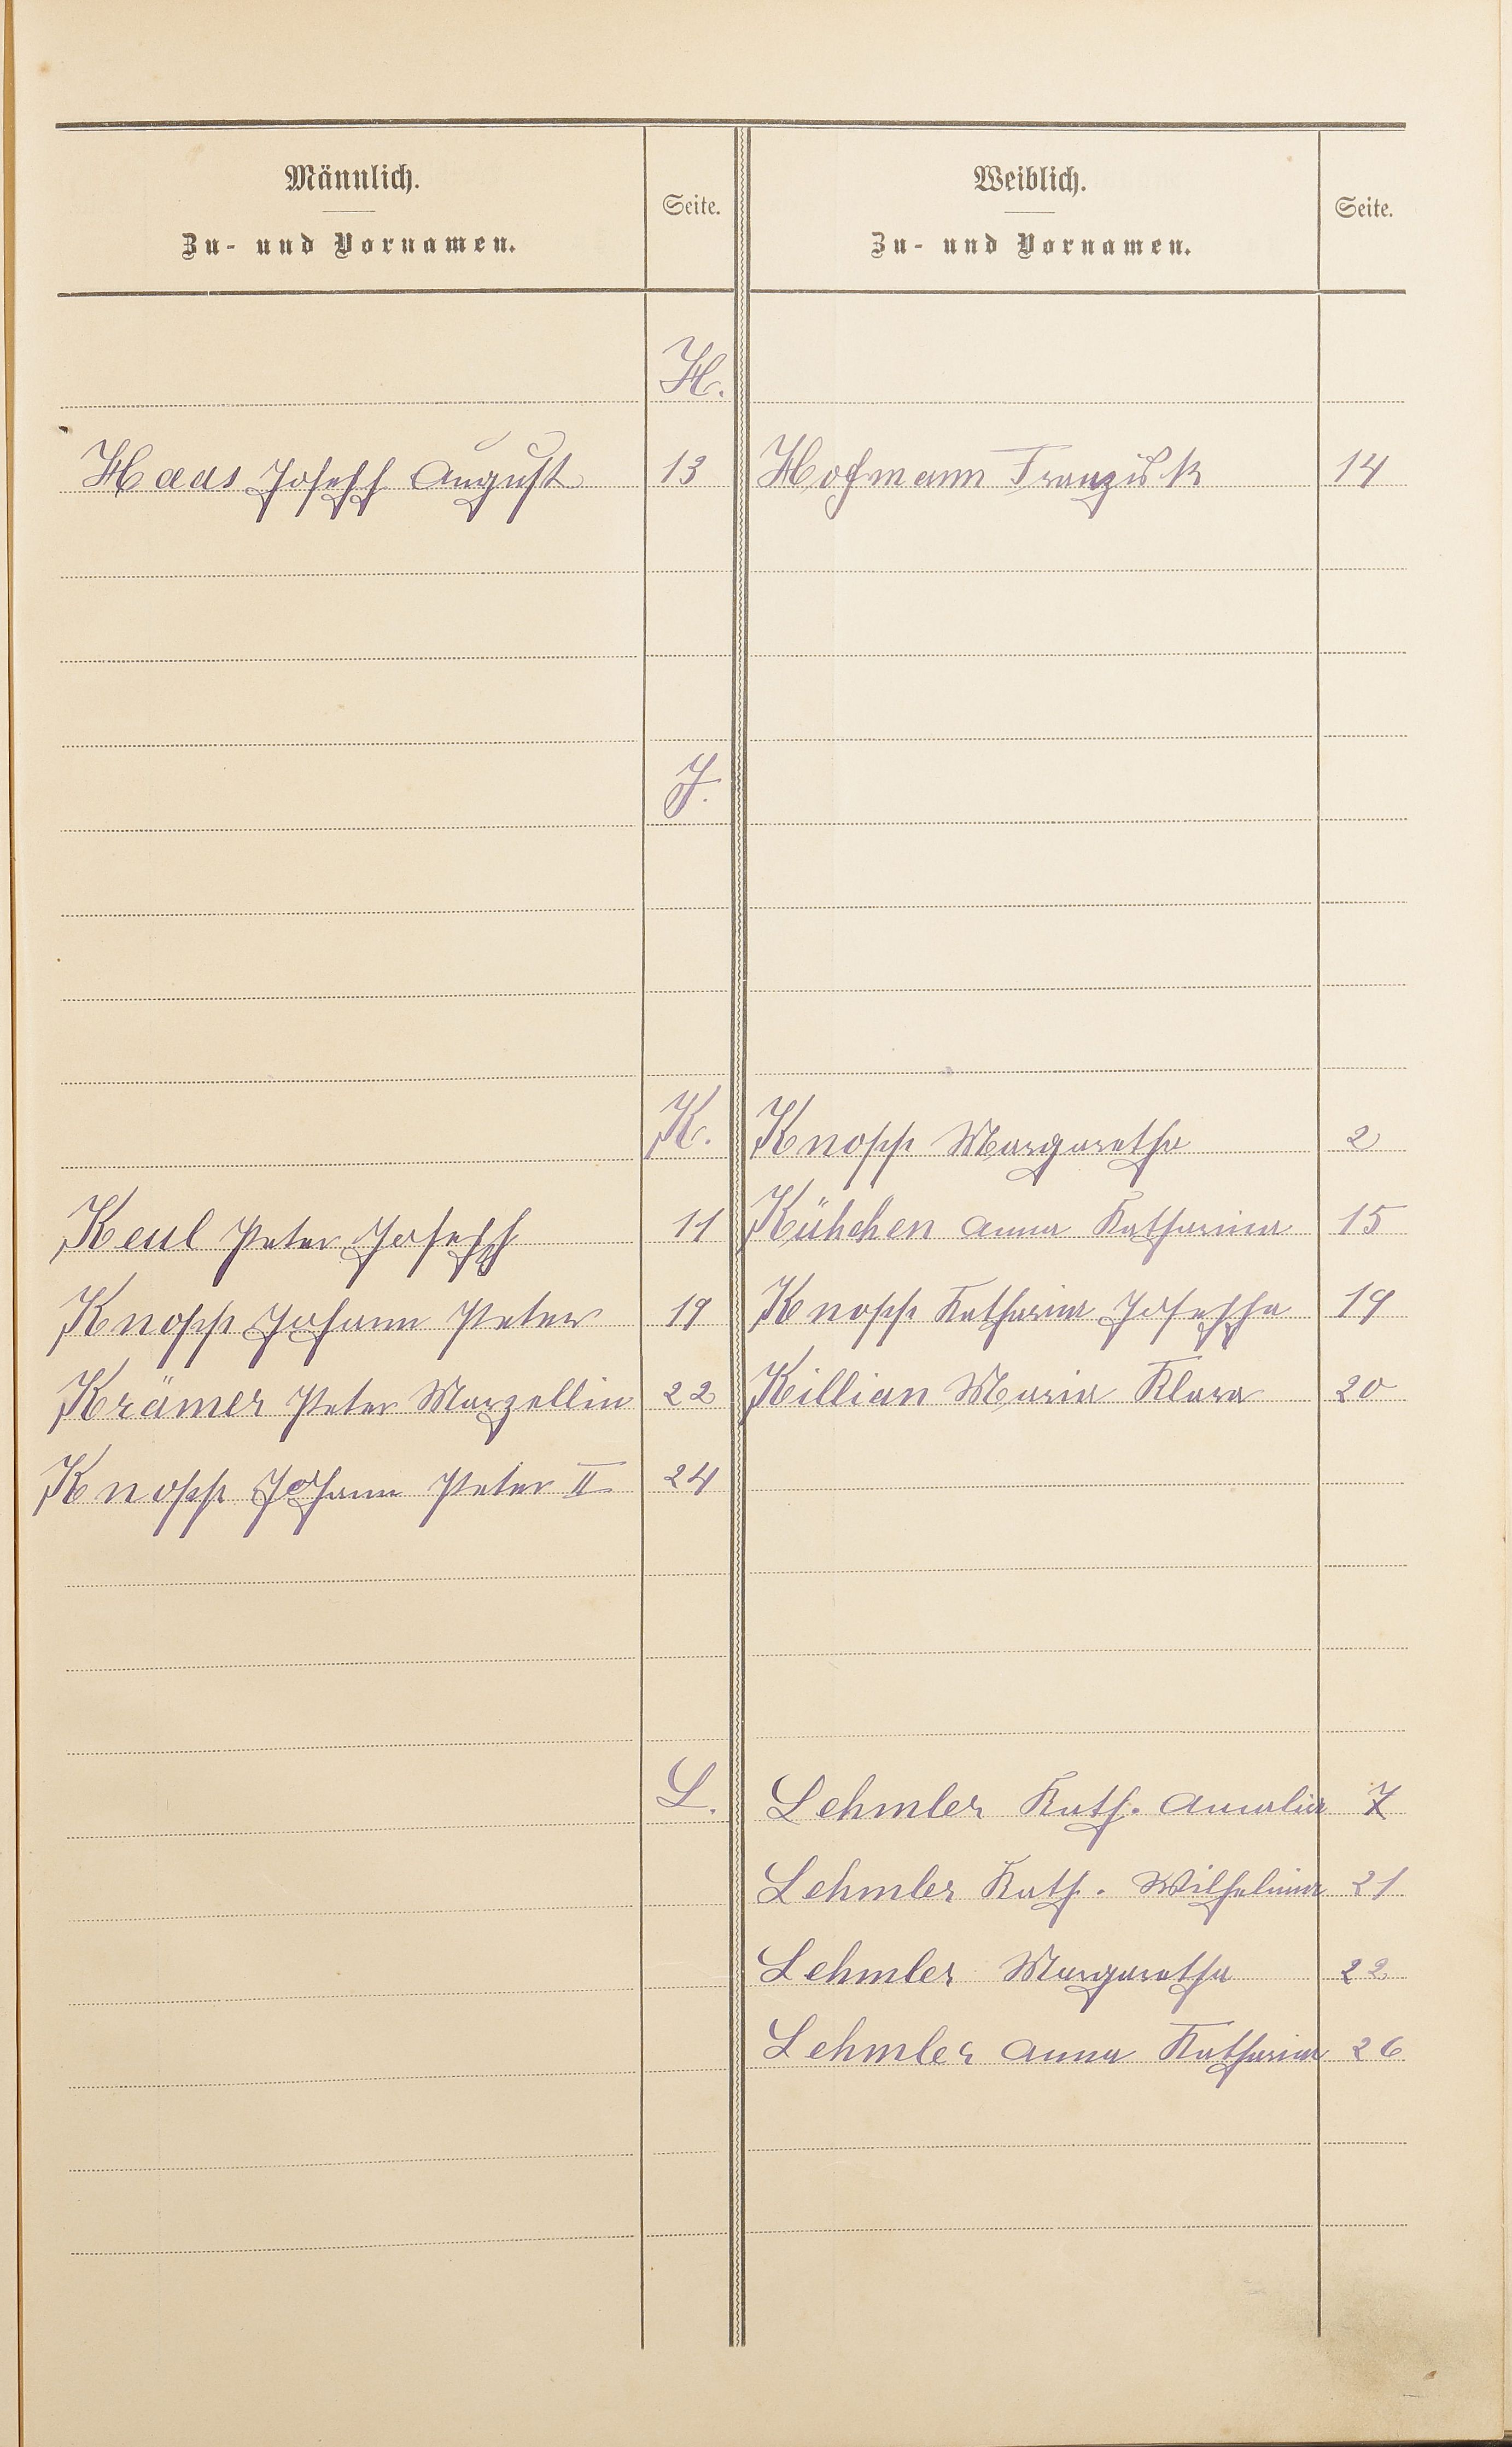 Männlich.
Zu- und Vornamen.
Seite.
Weiblich.
Zu- und Vornamen.
Seite.
H.
Haas Joseph August 13 Hofmann Franzisk 14
J.
K. Knopp Margaretha 2
Keul Peter Joseph 11 Kühchen Anna Katharina 15
Knopp Johann Peter 19 Knopp Katharina Josepha 19
Krämer Peter Marzellin 22 Killian Maria Klara 20
Knopp Johann Peter II 24
L. Lehmler Kath. Amalia 7
Lehmler Kath. Wilhelmina 21
Lehmler Margaretha 22
Lehmler Anna Katharina 26